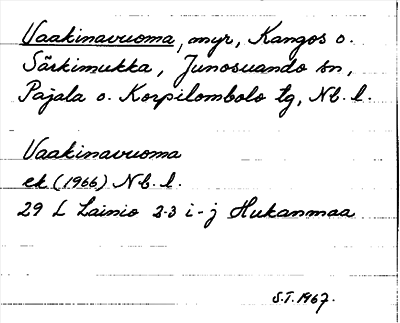 Vaakinavuoma, myr, Kangos o.
Särkimukka, Junosuando sn,
Pajala o. Korpilombolo tg, Nb. l.
Vaakinavuoma
ek (1966) Nb. l.
29 L Lainio 2-3 i-j Hukanmaa
S.T. 1967.